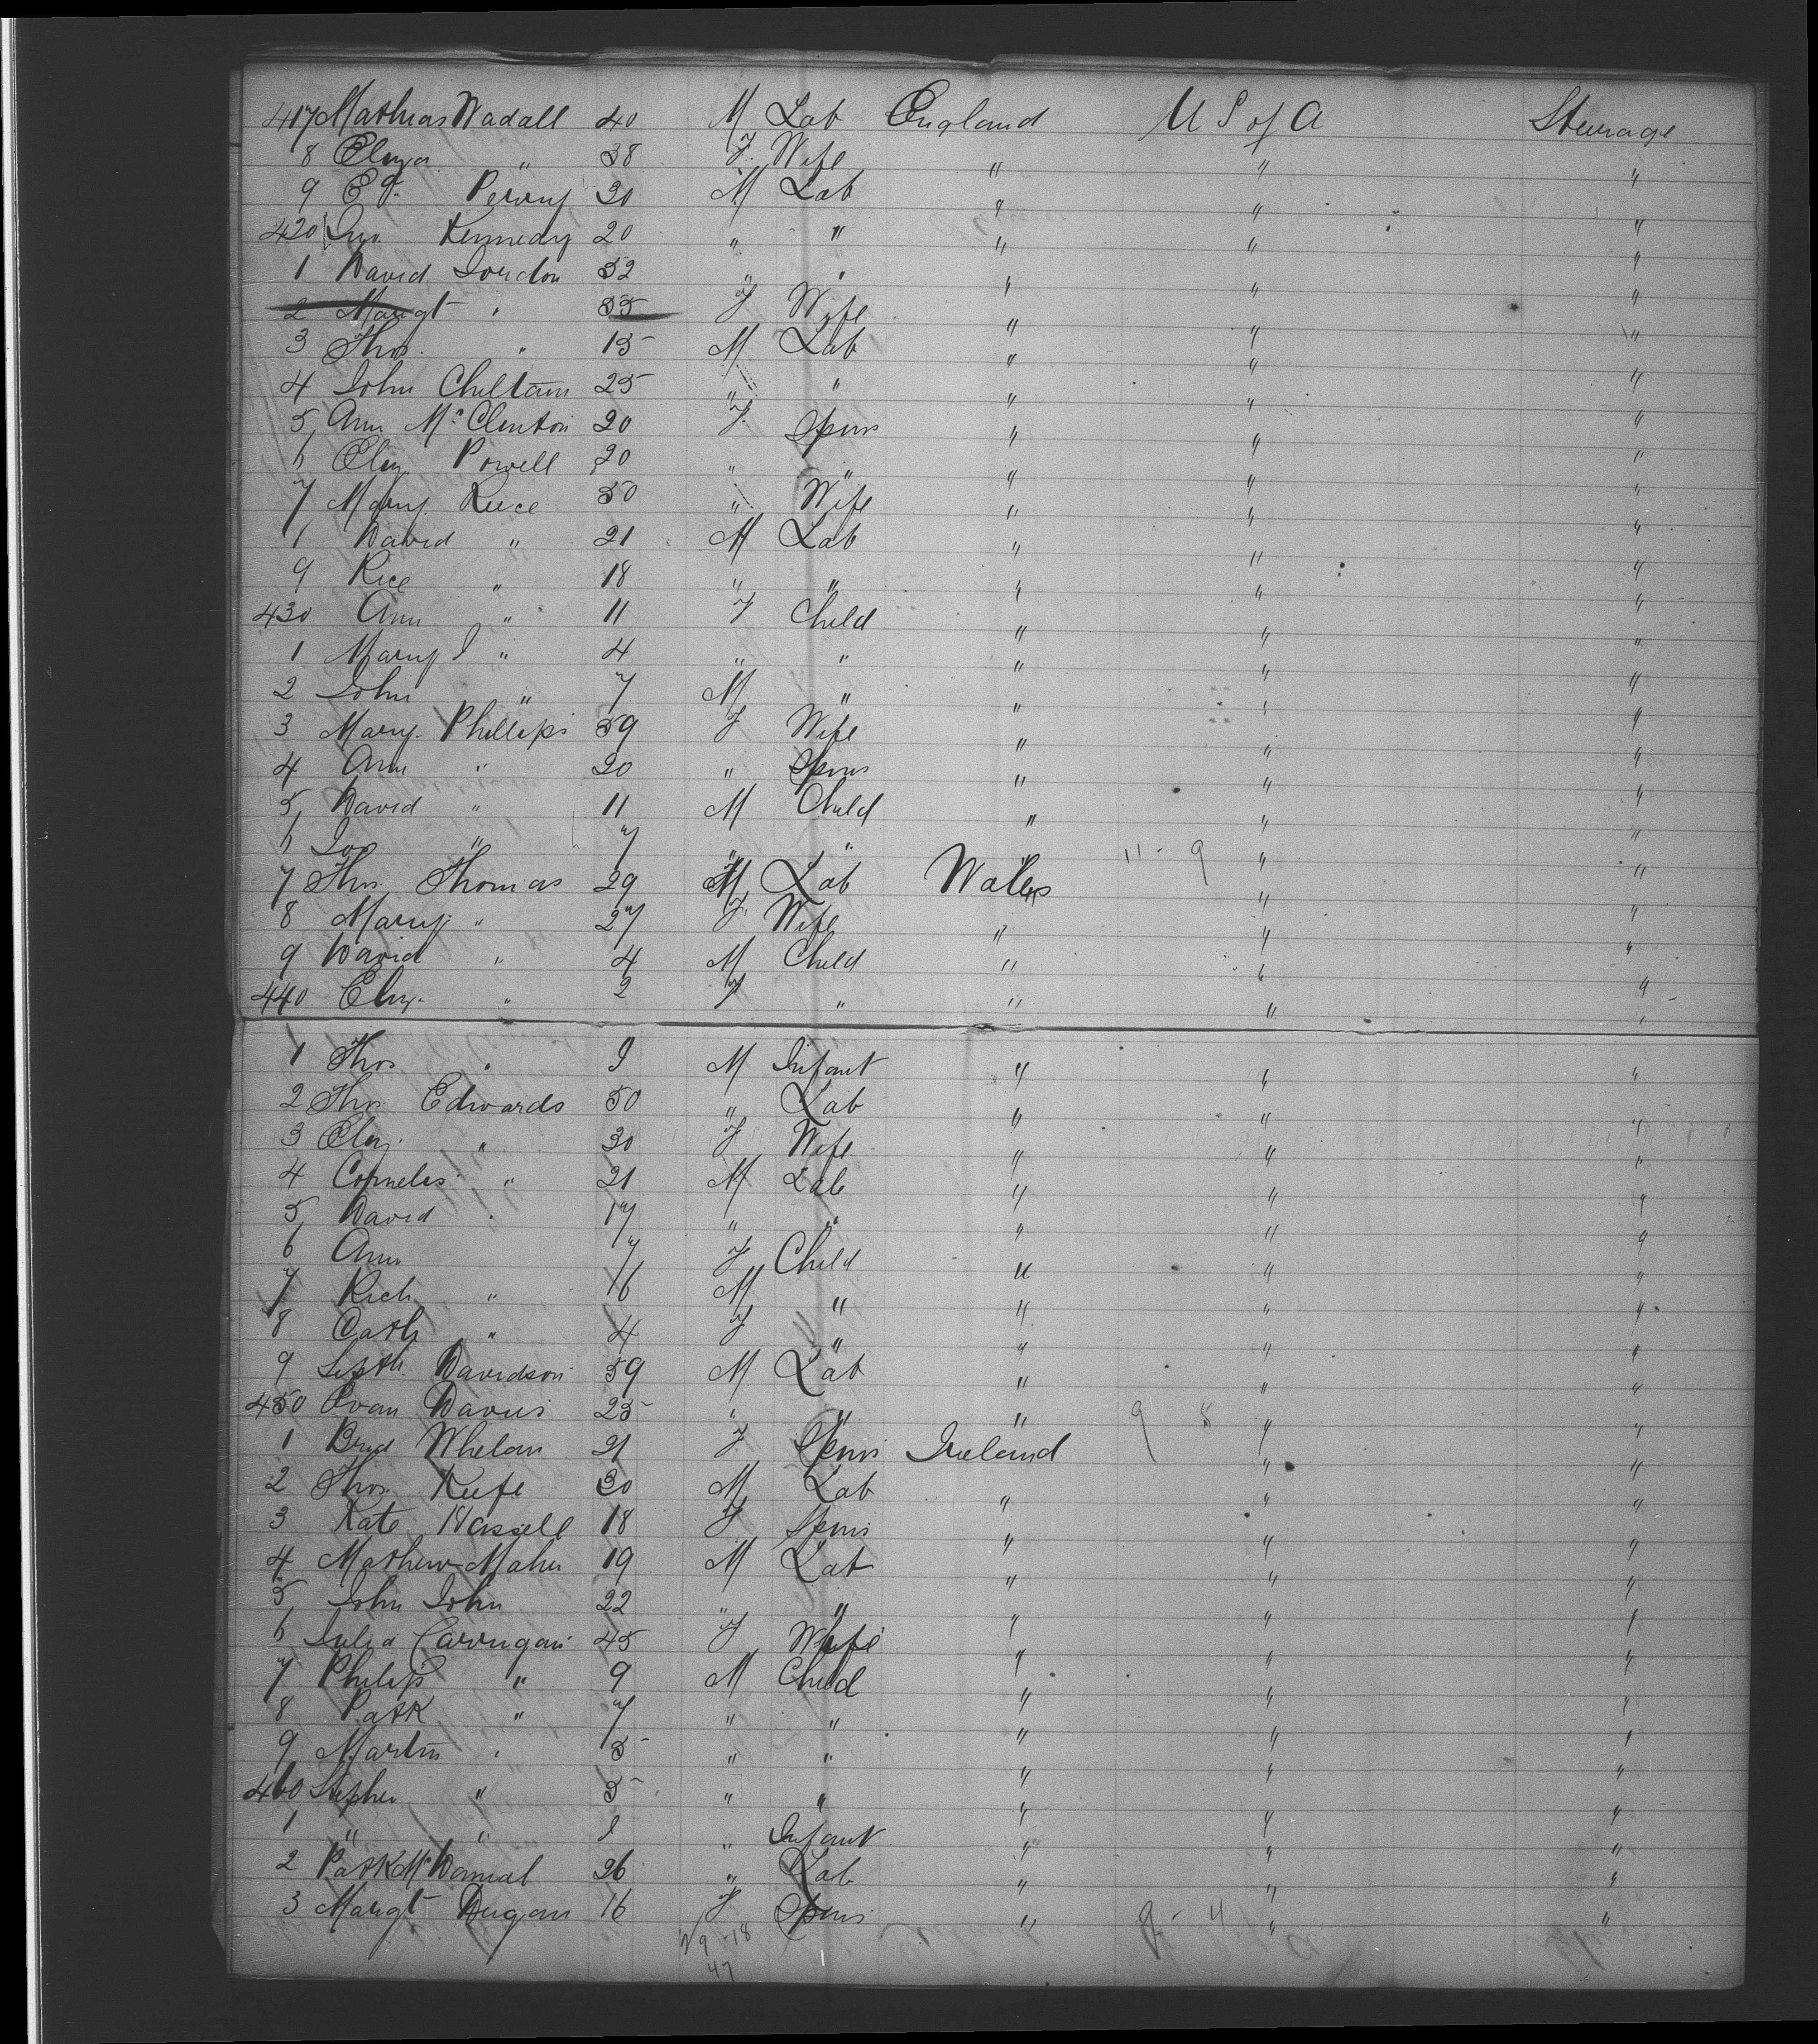 417 Mathias Wadall 40 M Lab England U S of A Steerage
8 Eliza " 38 F. Wife " " "
9 Perry 30 M Lab " " "
420 Jno. Kennedy 20 " " " " "
1 David Jordon 32 " " " " "
2 Margt " 35 F Wife " " "
3 Thos. " 15 M Lab " " "
4 John Cheltam 25 " " " " "
5 Ann McClinton 20 F. Spins " " "
6 Eliz. Powell 20 " " " " "
7 Mary Reece 50 " Wife " " "
1 David " 21 M Lab " " "
9 Rice " 18 " " " " "
430 Ann " 11 F Child " " "
1 Mary J " 4 " " " " "
2 John " 7 M " " " "
3 Mary Phillips 39 F Wife " " "
4 Ann " 20 " Spins " " "
5 David " 11 M Child " " "
6 " 7 " " " 11 - 9 " "
7 Thos. Thomas 29 M Lab Wales " "
8 Mary " 27 F. Wife " " "
9 David " 4 M Child " " "
440 Eliz. " 2 F " " " "
1 Thos " I M Infant " " "
2 Thos Edwards 50 " Lab " " "
3 Eliz. " 30 F Wife " " "
4 Cornelis " 21 M Lab " " "
5 David " 17 " " " " "
6 Ann 7 F Child " " "
7 Rich " 16 M " " " "
8 Cath " 4 F " " " "
9 Davidson 39 M Lab " " "
450 Evan Davies 25 " " " 9 8 " "
1 Brid Whelan 21 F Spins Ireland " "
2 Thos. Keefe 30 M Lab " " "
3 Kate 18 F Spins " " "
4 Mathew Maher 19 M Lab " " "
5 John John 22 " " " " "
6 Julia Carrigan 45 F Wife " " "
7 Philip " 9 M Child " " "
8 Patk " 7 " " " " "
9 Martin " 5 " " " " "
460 Stephen " 3 " " " " "
1 " " I " Infant " " "
2 Patk McDonnal 26 " Lab " " "
3 Margt Dugan 16 F Spins " 9 - 4 " "
29 - 18
47